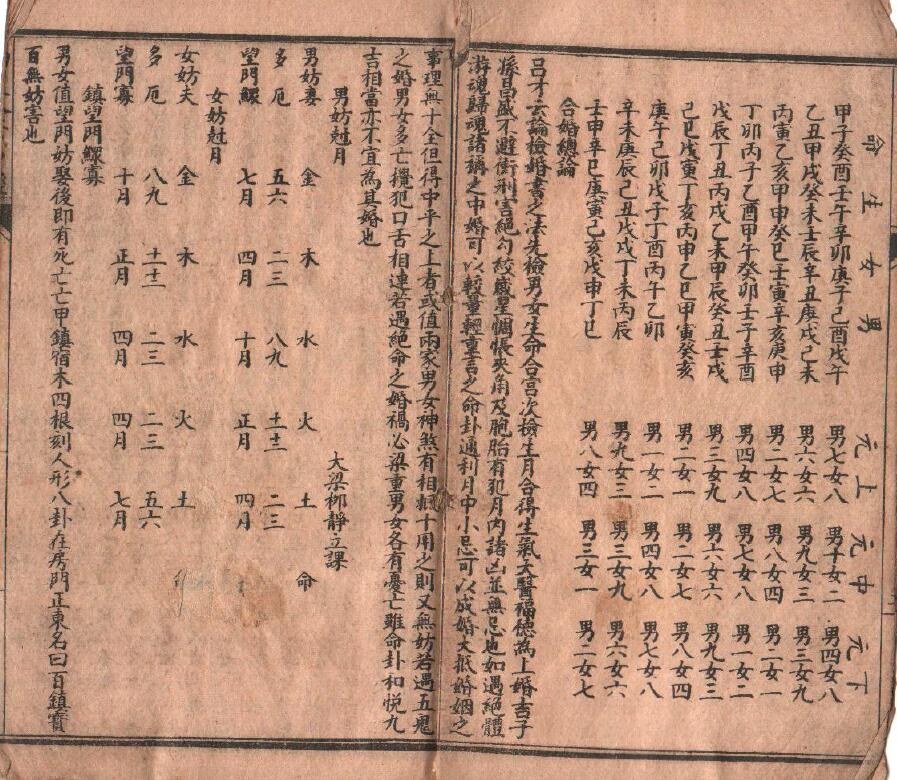 男女生命
上元
中元
下元
甲子癸酉壬午辛卯庚子己酉戊午
男七女八
男一女二
男四女八
乙丑甲戌癸未壬辰辛丑庚戌己未
男六女六
男九女三
男三女九
丙寅乙亥甲申癸巳壬寅辛亥庚申
男二女七
男八女四
男二女一
丁卯丙子乙酉甲午癸卯壬子辛酉
男四女八
男七女八
男一女二
戊辰丁丑丙戌乙未甲辰癸丑壬戌
男三女九
男六女六
男九女三
己巳戊寅丁亥丙申乙巳甲寅癸亥
男二女一
男二女七
男八女四
庚午己卯戊子丁酉丙午乙卯
男一女二
男四女八
男七女八
辛未庚辰己丑戊戌丁未丙辰
男九女三
男三女九
男六女六
壬申辛巳庚寅己亥戊申丁巳
男八女四
男三女一
男二女七
合婚總論
呂才云論檢婚書之法先檢男女生命合宮次檢生月合得生氣天醫福德為上婚吉子
孫昌盛不避衝刑害絕勾絞歲星惆悵夾角及胞胎有犯月內諸凶並無忌也如遇絕體
游魂歸魂諸稱之中婚可以較量輕重言之命卦通利月中小忌可以成婚大抵婚姻之
事理無十全但得中平之上者或值兩家男女神煞有相艱十用之則又無妨若遇五鬼
之婚男女多亡攪犯口舌相連若遇絕命之婚禍必梁重男女各有憂亡雖命卦和悅九
吉相當亦不宜為其婚也
男妨尅月
大梁柳靜立課
男妨妻 金 木 水 火 土 命
多厄 五六 二三 八九 十十二 二三
望門鰥 七月 四月 十月 正月 四月
女妨尅月
女妨夫 金 木 水 火 土
多厄 八九 十十二 二三 二三 五六
望門寡 十月 正月 四月 四月 七月
鎮望門鰥寡
男女值望門妨娶後即有死亡亡甲鎮宿木四根刻人形八卦在房門正東名曰百鎮寶
百無妨害也